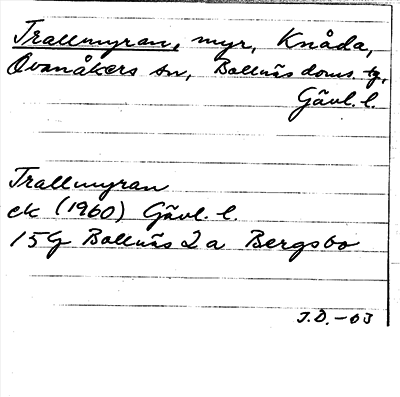 Trallmyran, myr, Knåda,
Ovanåkers sn, Bollnäs doms. tg,
Gävl. l.
Trallmyran
ek (1960) Gävl. l.
15G Bollnäs 2a Bergsbo
J.D. -03